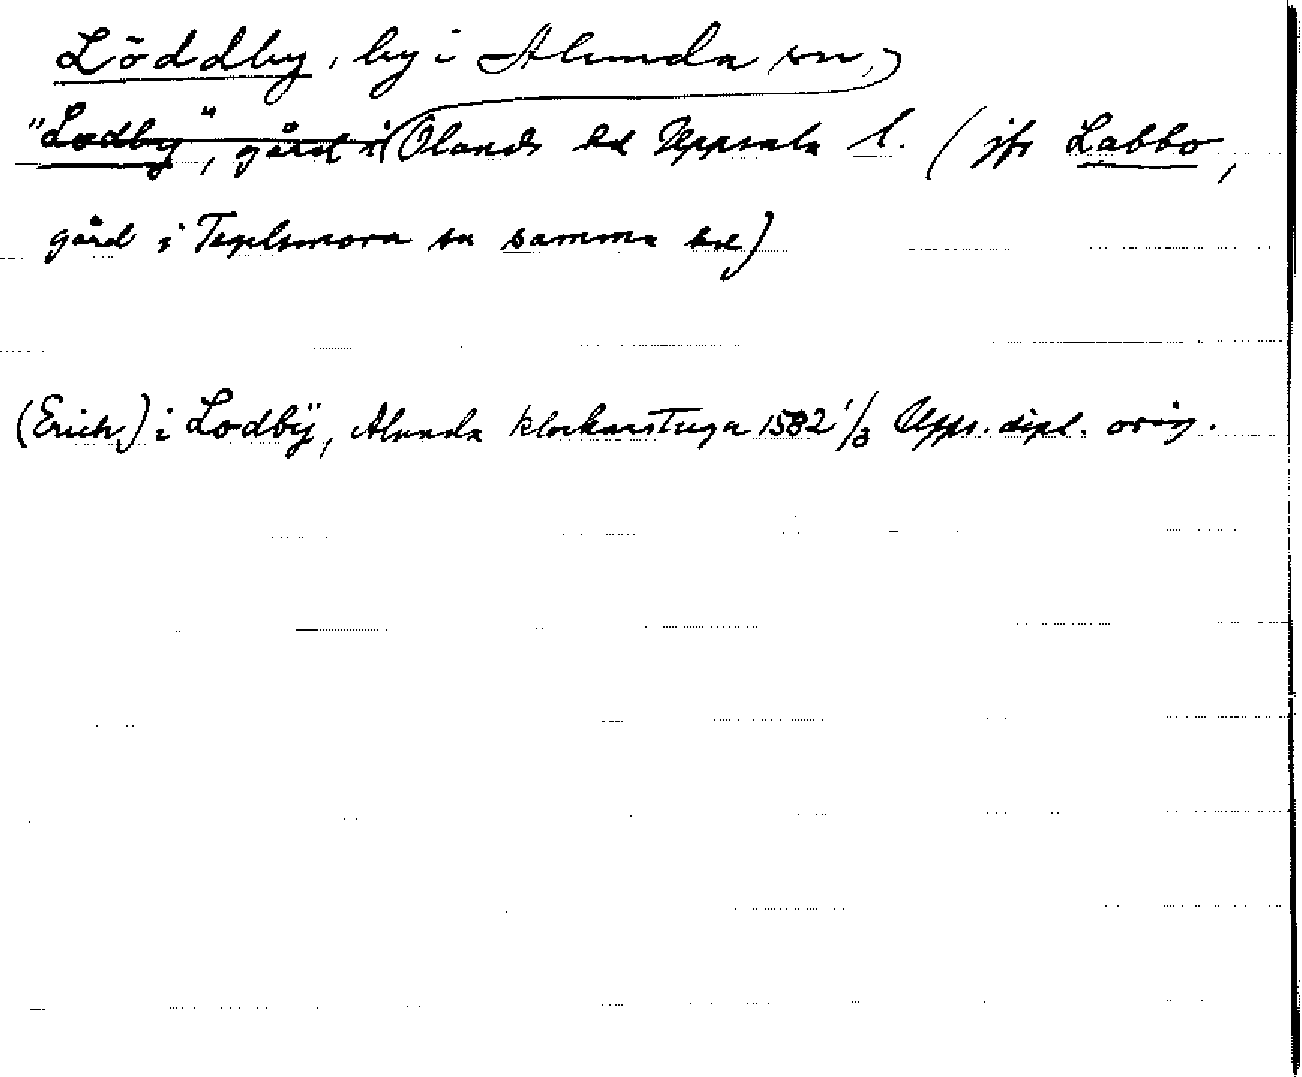 Löddby, by i Alunda sn,
"Lodby", gård i Olands hd Uppsala l. (jfr Labbo,
gård i Tegelsmora sn samma hd)
(Erich) i Lodbÿ, Alunda klockarstuga 1582 1/3 Upps. dipl. orig.